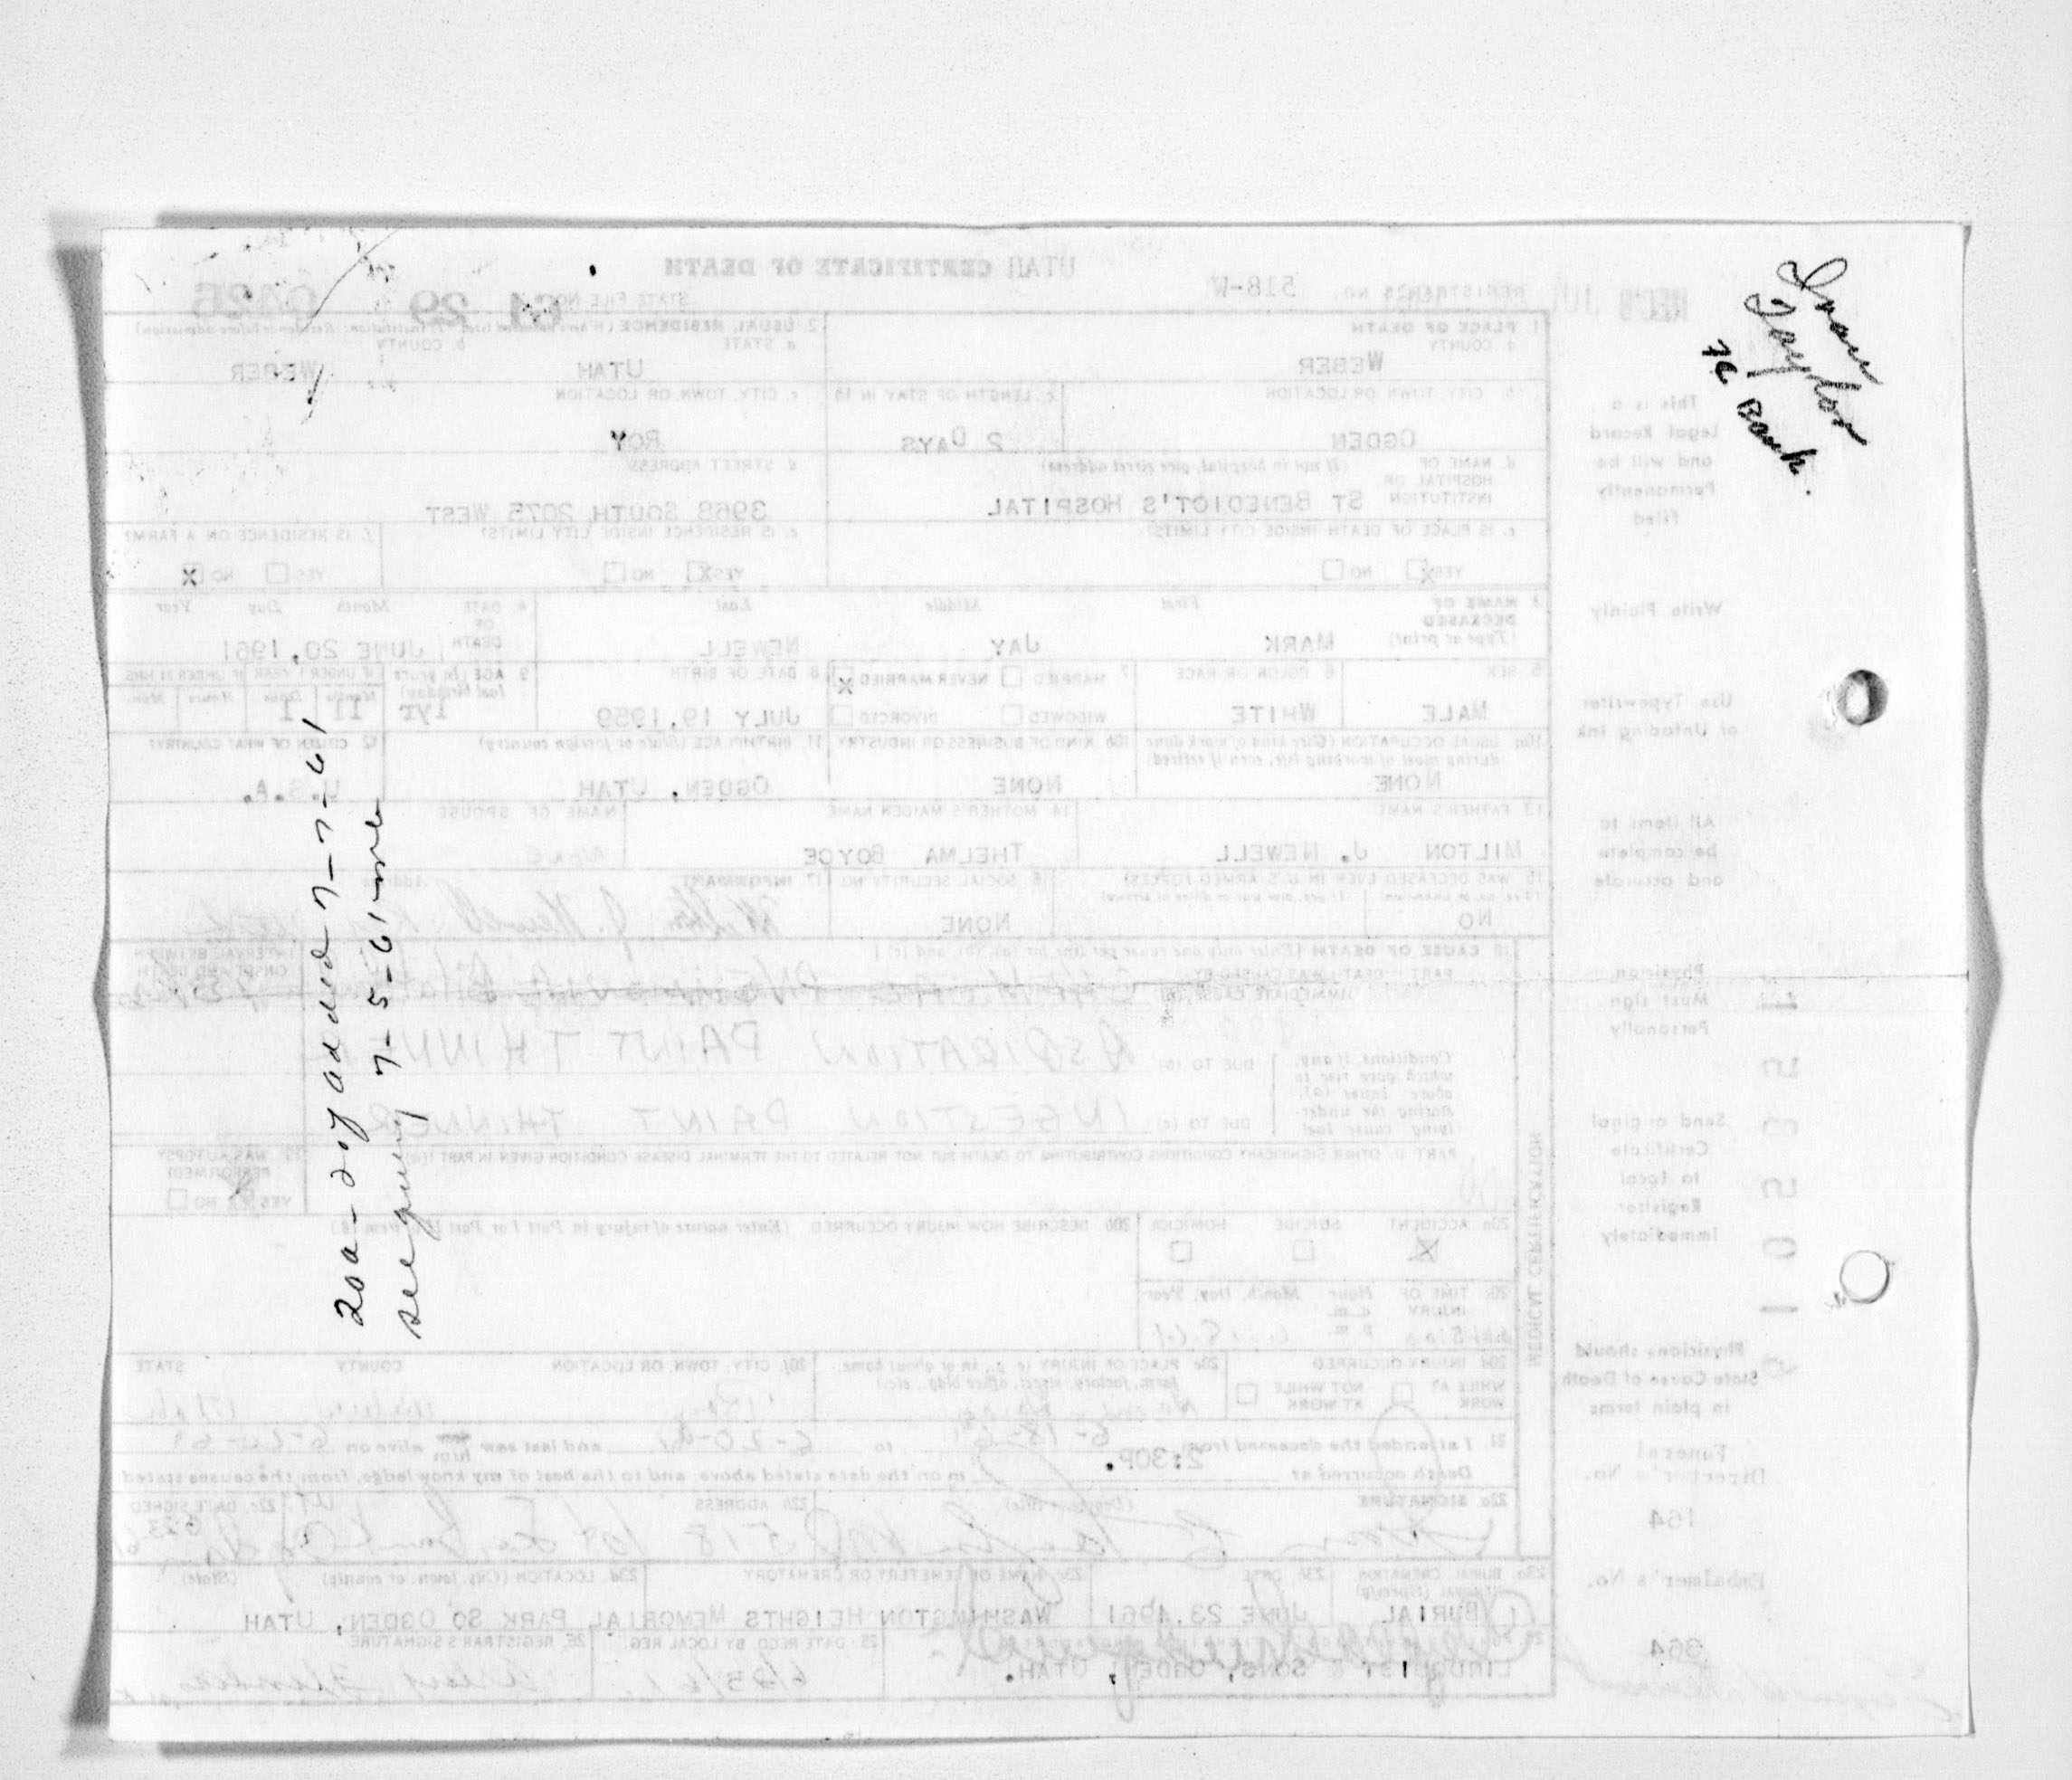 UTAH CERTIFICATE OF DEATH
REGISTRAR'S NO. 518-W
STATE FILE NO. 61 29
1. PLACE OF DEATH
a. COUNTY
WEBER
2. USUAL RESIDENCE
a. STATE
UTAH
b. COUNTY
WEBER
b. CITY, TOWN, OR LOCATION
OGDEN
c. LENGTH OF STAY IN 1b
2 DAYS
c. CITY, TOWN, OR LOCATION
ROY
d. NAME OF HOSPITAL OR INSTITUTION (If not in hospital, give street address)
ST BENEDICT'S HOSPITAL
d. STREET ADDRESS
3968 SOUTH 2075 WEST
e. IS PLACE OF DEATH INSIDE CITY LIMITS?
YES X NO
e. IS RESIDENCE INSIDE CITY LIMITS?
YES X NO
f. IS RESIDENCE ON A FARM?
YES NO X
3. NAME OF DECEASED (Type or print)
First Middle Last
MARK JAY NEWELL
4. DATE OF DEATH
Month Day Year
JUNE 20, 1961
5. SEX
MALE
6. COLOR OR RACE
WHITE
7. MARRIED NEVER MARRIED X
WIDOWED DIVORCED
8. DATE OF BIRTH
JULY 19, 1959
9. AGE (In years last birthday)
1yr
IF UNDER 1 YEAR IF UNDER 24 HRS
Months Days Hours Min.
11 1
10a. USUAL OCCUPATION (Give kind of work done during most of working life, even if retired)
NONE
10b. KIND OF BUSINESS OR INDUSTRY
NONE
11. BIRTHPLACE (State or foreign country)
OGDEN, UTAH
12. CITIZEN OF WHAT COUNTRY?
U.S.A.
13. FATHER'S NAME
MILTON J. NEWELL
14. MOTHER'S MAIDEN NAME
THELMA BOYCE
NAME OF SPOUSE
NONE
15. WAS DECEASED EVER IN U.S. ARMED FORCES?
NO
16. SOCIAL SECURITY NO.
NONE
17. INFORMANT Address
Milton J. Newell Roy Utah
18. CAUSE OF DEATH (Enter only one cause per line for (a), (b), and (c).)
PART I. DEATH WAS CAUSED BY:
IMMEDIATE CAUSE (a)
INTERVAL BETWEEN ONSET AND DEATH
Conditions, if any, which gave rise to above cause (a), stating the underlying cause last
DUE TO (b) ASPIRATION PAINT THINNER
DUE TO (c) INGESTION PAINT THINNER
PART II. OTHER SIGNIFICANT CONDITIONS CONTRIBUTING TO DEATH BUT NOT RELATED TO THE TERMINAL DISEASE CONDITION GIVEN IN PART I (a)
19. WAS AUTOPSY PERFORMED?
YES X NO
20a. ACCIDENT X SUICIDE HOMICIDE
20b. DESCRIBE HOW INJURY OCCURRED (Enter nature of injury in Part I or Part II of item 18.)
20c. TIME OF INJURY Hour Month, Day, Year
a.m.
p.m.
20d. INJURY OCCURRED
WHILE AT WORK NOT WHILE AT WORK
20e. PLACE OF INJURY (e. g., in or about home, farm, factory, street, office bldg., etc.)
20f. CITY, TOWN, OR LOCATION COUNTY STATE
Roy Weber Utah
21. I attended the deceased from 6-18-61 to 6-20-61 and last saw him alive on 6-20-61
Death occurred at 2:30P. m on the date stated above, and to the best of my knowledge, from the causes stated
22a. SIGNATURE (Degree or title)
22b. ADDRESS
22c. DATE SIGNED
23a. BURIAL, CREMATION, REMOVAL (Specify)
BURIAL
23b. DATE
JUNE 23, 1961
23c. NAME OF CEMETERY OR CREMATORY
WASHINGTON HEIGHTS MEMORIAL PARK
23d. LOCATION (City, town, or county) (State)
SO OGDEN, UTAH
LINDQUIST & SONS, OGDEN, UTAH.
25. DATE RECD. BY LOCAL REG.
6/23/61
26. REGISTRAR'S SIGNATURE
MEDICAL CERTIFICATION
REC'D JUL
This is a
Legal Record
and will be
Permanently
filed
Write Plainly
Use Typewriter
or Unfading Ink
All items to
be complete
and accurate
Physician
Must sign
Personally
Send original
Certificate
to Local
Registrar
Immediately
Physicians should
State Cause of Death
in plain terms
Funeral
Director's No.
164
Embalmer's No.
364
20a-20f added 7-7-61
see query 7-5-61
Ivan
Taylor
Bank.